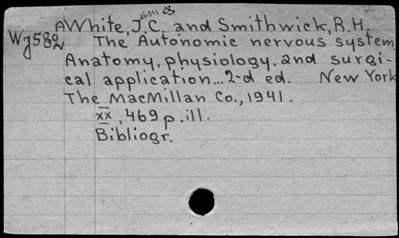 ames
AWhite, J.C. and Smithwick, R.H.
Wj582 The Autonomic nervous system
Anatomy, physiology, and surgi-
cal application... 2-d ed. New York
The MacMillan Co., 1941.
xx, 469 p. ill.
Bibliogr.